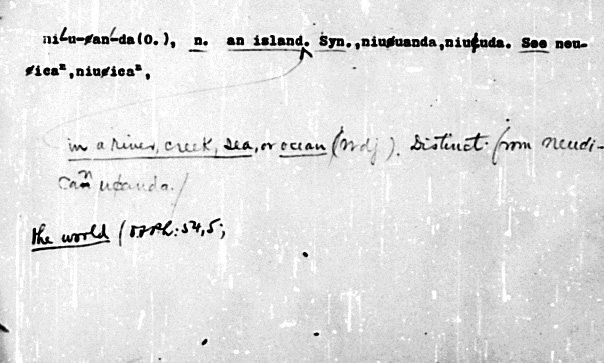 ni´u-ȼan´-da(O.), n. an island. Syn.,niuȼuanda,niuȼuda. See neu-
ȼicaⁿ,niuȼicaⁿ,
in a river, creek, sea, or ocean (Wdj). Distinct from neudi-
caⁿ uȼanda.
the world (54,5;